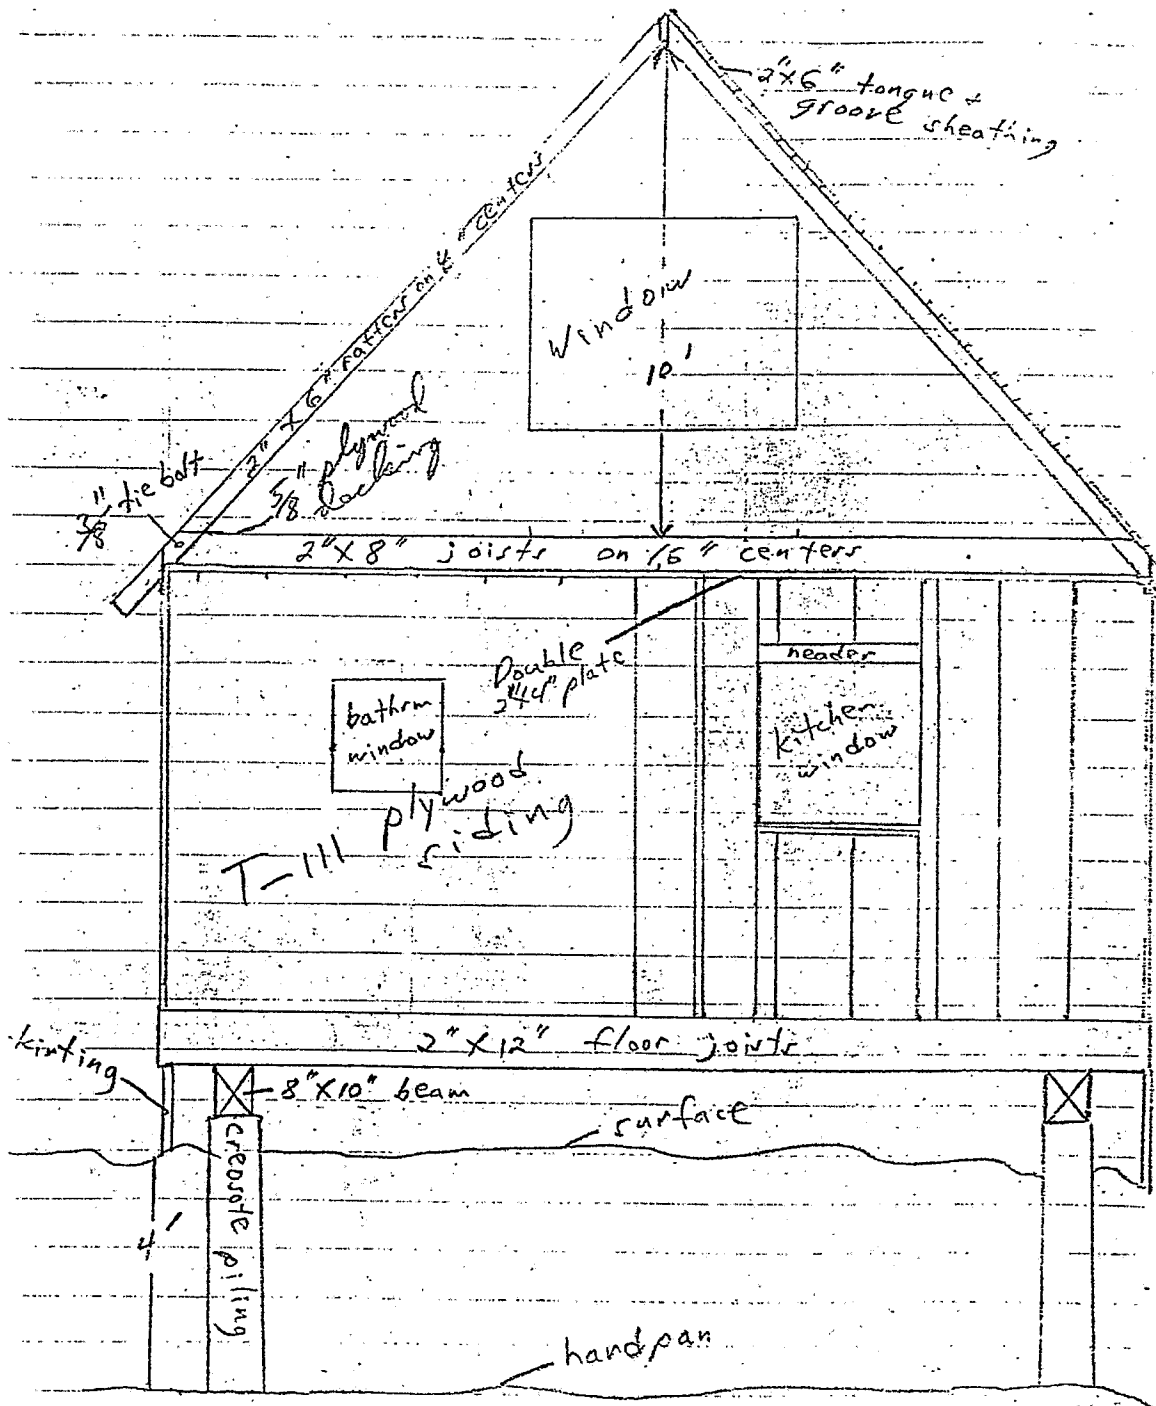 2"X6" tongue +
groove sheathing
2" X 6" rafters on " centers
Window
10'
5/8" plywood
decking
3/8" tie bolt
2"X8" joists on 16" centers
Double
2"X4" plate
header
bathrm
window
kitchen
window
T-111 plywood
siding
2"X12" floor joists
kirting
8"X10" beam
surface
creosote piling
4'
handpan